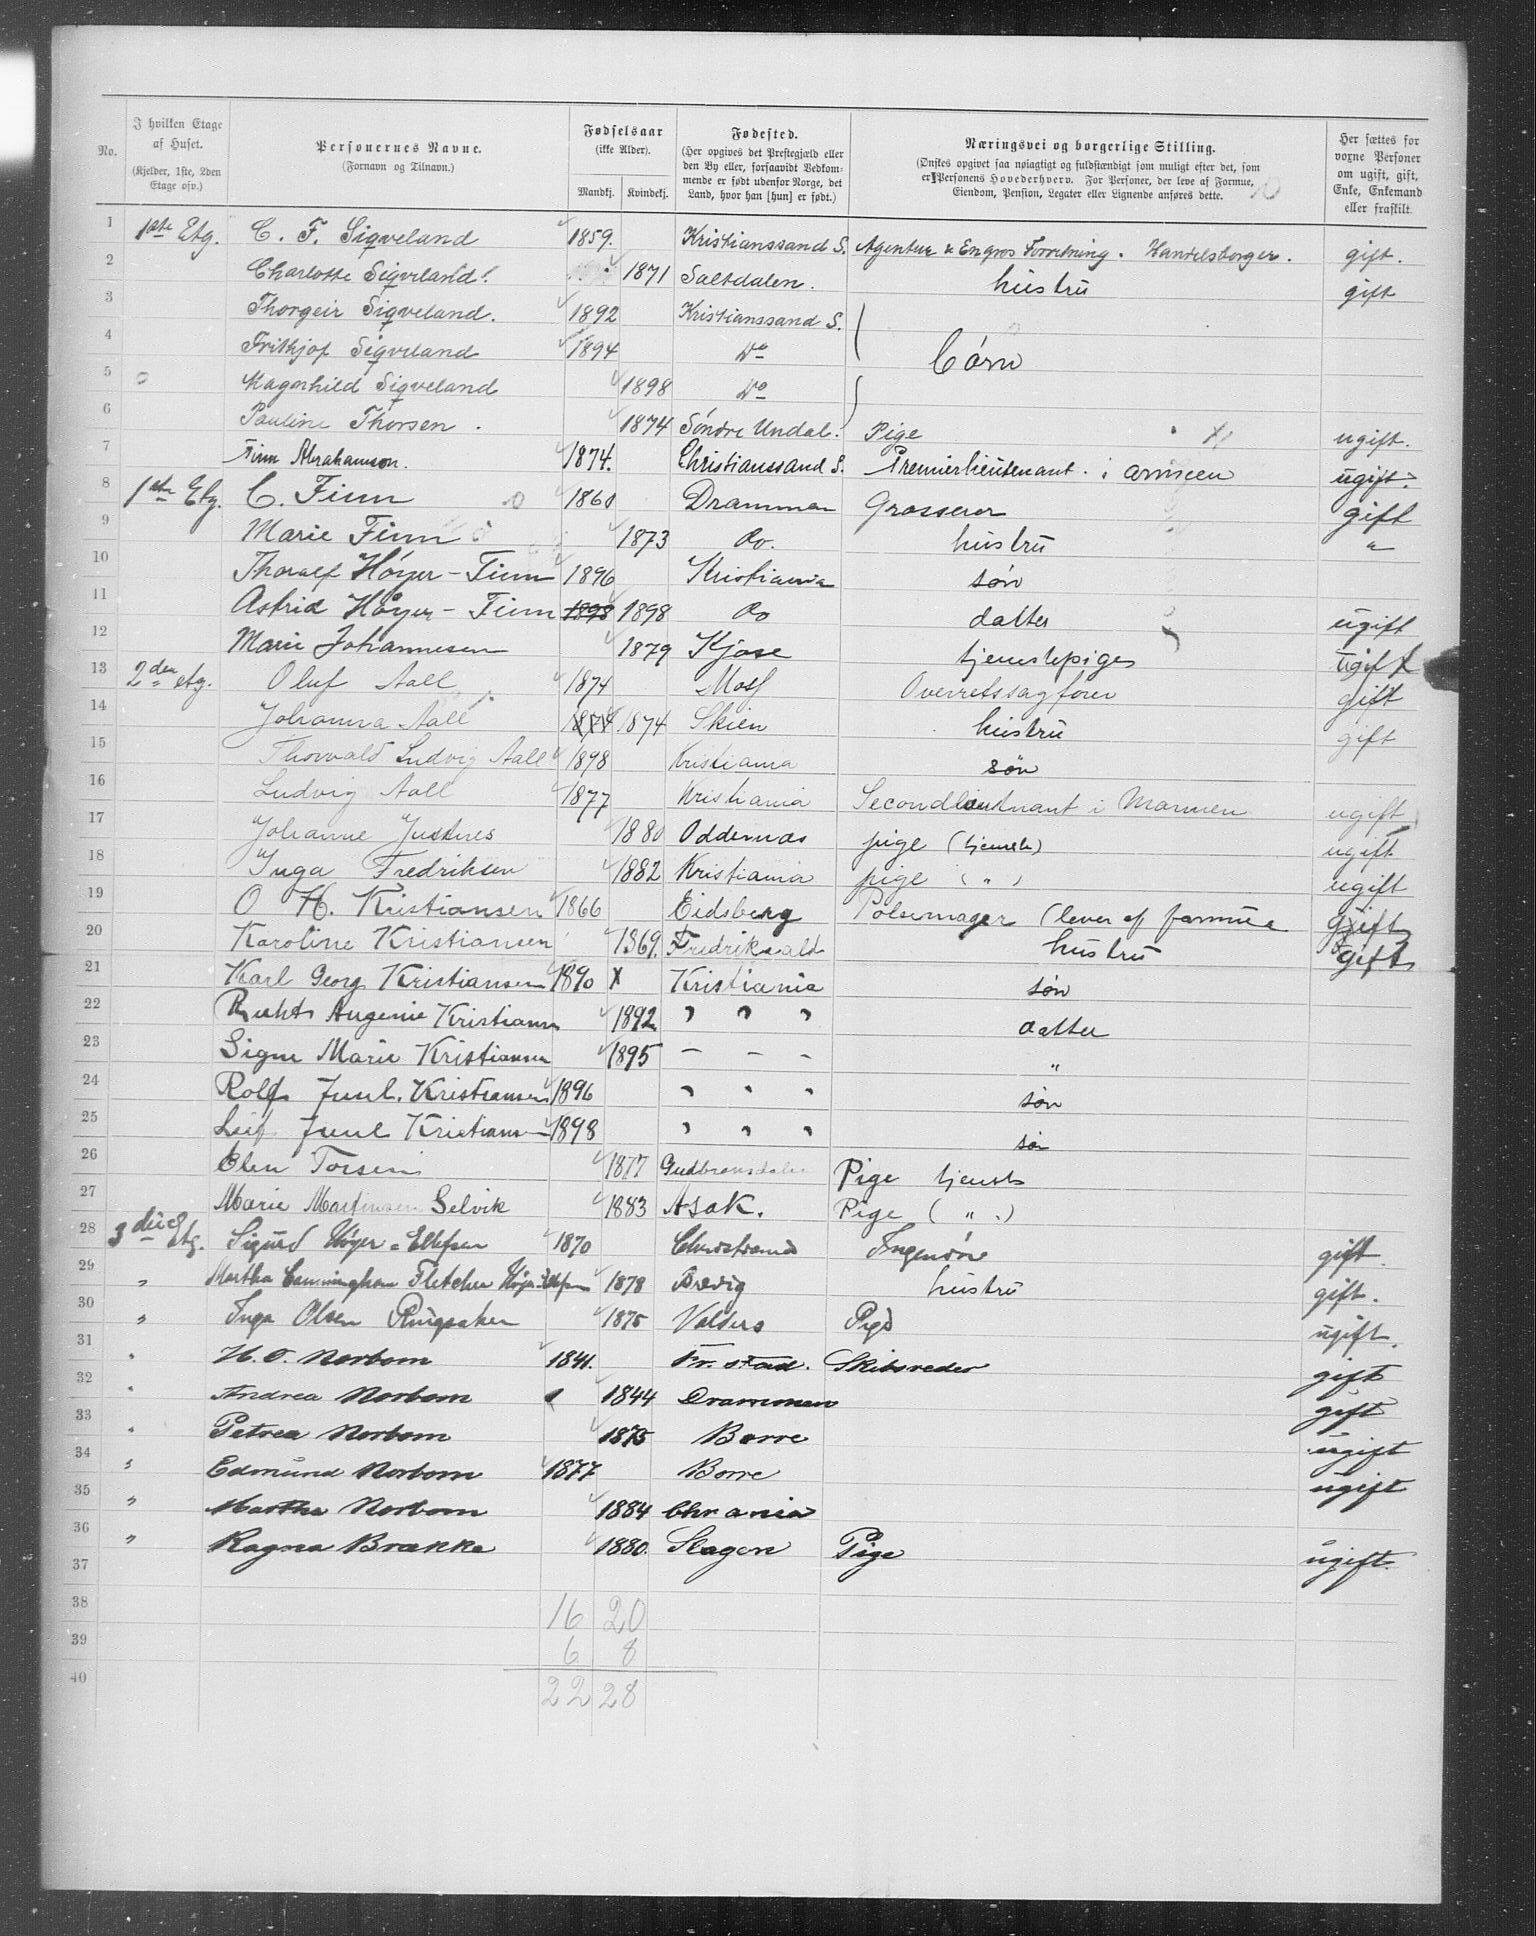 No. | I hvilken Etage af Huset. (Kjelder, 1ste, 2den Etage osv.) | Personernes Navne. (Fornavn og Tilnavn.) | Fødselsaar (ikke Alder). Mandkj. Kvindekj. | Fødested. (Her opgives det Prestegjæld eller den By eller, forsaavidt Vedkommende er født udenfor Norge, det Land, hvor han [hun] er født.) | Næringsvei og borgerlige Stilling. (Ønskes opgivet saa nøiagtigt og fuldstændigt som muligt efter det, som er Personens Hovederhverv. For Personer, der leve af Formue, Eiendom, Pension, Legater eller Lignende anføres dette. | Her sættes for voxne Personer om ugift, gift, Enke, Enkemand eller fraskilt.
1 1ste Etg. C. F. Sigveland 1859. Kristianssand S. Agentur & Engros Forretning. Handelsborger. gift.
2 Charlotte Sigveland. 1871 Saltdalen. hustru gift
3 Thorgeir Sigveland. 1892 Kristianssand S.
4 Frithjof Sigveland 1894 Do Börn
5 Magnhild Sigveland 1898 Do
6 Pauline Thorsen. 1874 Söndre Undal. Pige ugift.
7 Finn Abrahamson. 1874. Christianssand S. Premierlieutenant i armeen ugift.
8 1ste Etg. C. Finn 1860 Drammen Grosserer gift
9 Marie Finn 1873 do. hustru "
10 Thoralf Höyer-Finn 1896 Kristiania sön
11 Astrid Höyer-Finn 1898 1898 do datter ugift
12 Marie Johannesen 1879 Kjose tjenestepige ugift
13 2den etg. Oluf Aall 1874 Moss Overretssagförer gift
14 Johanna Aall 1874 1874 Skien hustru gift
15 Thorvald Ludvig Aall 1898 Kristiania sön
16 Ludvig Aall 1877 Kristiania Secondlieutnant i Marinen ugift
17 Johanne Justnes 1880 Oddernes pige (tjeneste) ugift
18 Inga Fredriksen 1882 Kristiania pige ( " ) ugift
19 O H. Kristiansen 1866 Eidsberg Pölsemager (lever af formue gift
20 Karoline Kristiansen 1869. Fredrikshald hustru gift
21 Karl Georg Kristiansen 1890 x Kristiania sön
22 Augenie Kristiansen 1892 " " " datter
23 Signe Marie Kristiansen 1895 – – – "
24 Rolf Juul. Kristiansen 1896 " " " sön
25 Leif Juul Kristiansen 1898 " " " sön
26 Elen Torsen 1877 Gudbransdalen Pige tjeneste
27 Marie Martinsen Selvik 1883 Asak. Pige ( " )
28 3die Etg. Sigurd Höyer-Ellefsen 1870 Christiania Ingeniör gift.
29 " Martha Cunningham Fletcher Höyer-Ellefsen 1878 Brevig hustru gift.
30 " Inga Olsen Ringsaker 1875 Valders Pige ugift.
31 " H. O. Norbom 1841. Fr. stad. Skibsreder gift
32 " Andrea Norbom 1844 Drammen gift
33 " Petrea Norbom 1875 Borre ugift
34 " Edmund Norbom 1877 Borre ugift
35 " Martha Norbom 1884 Chrania
36 " Ragna Brække 1880. Slagen Pige ugift.
37
38 16 20
39 6 8
40 22 28